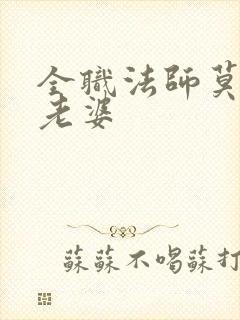 全職法師莫
老婆
蘇蘇不喝蘇打